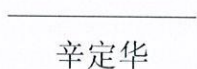 辛定华